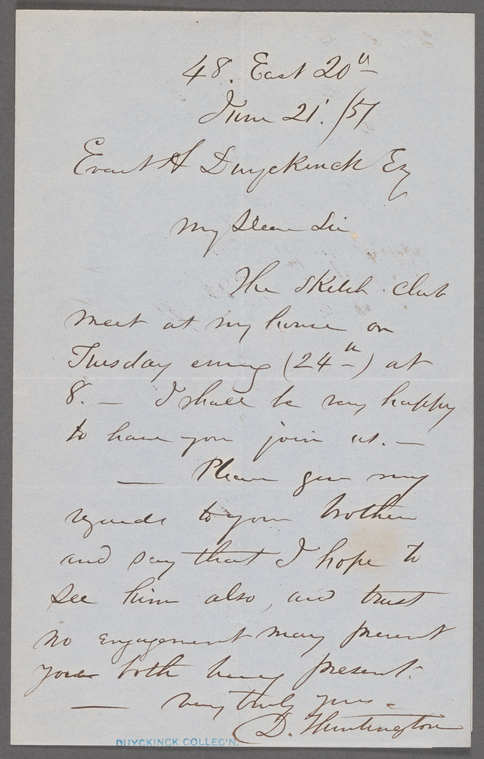 48. East 20th
June 21. /51
Evert A Duyckinck Esq
My Dear Sir
The Sketch club
meet at my house on
Tuesday evening (24th) at
8. — I shall be very happy
to have you join us. —
— Please give my
regards to your brother
and say that I hope to
see him also, and trust
no engagement may prevent
your both being present.
— very truly yours
D. Huntington
DUYCKINCK COLLEC'N.